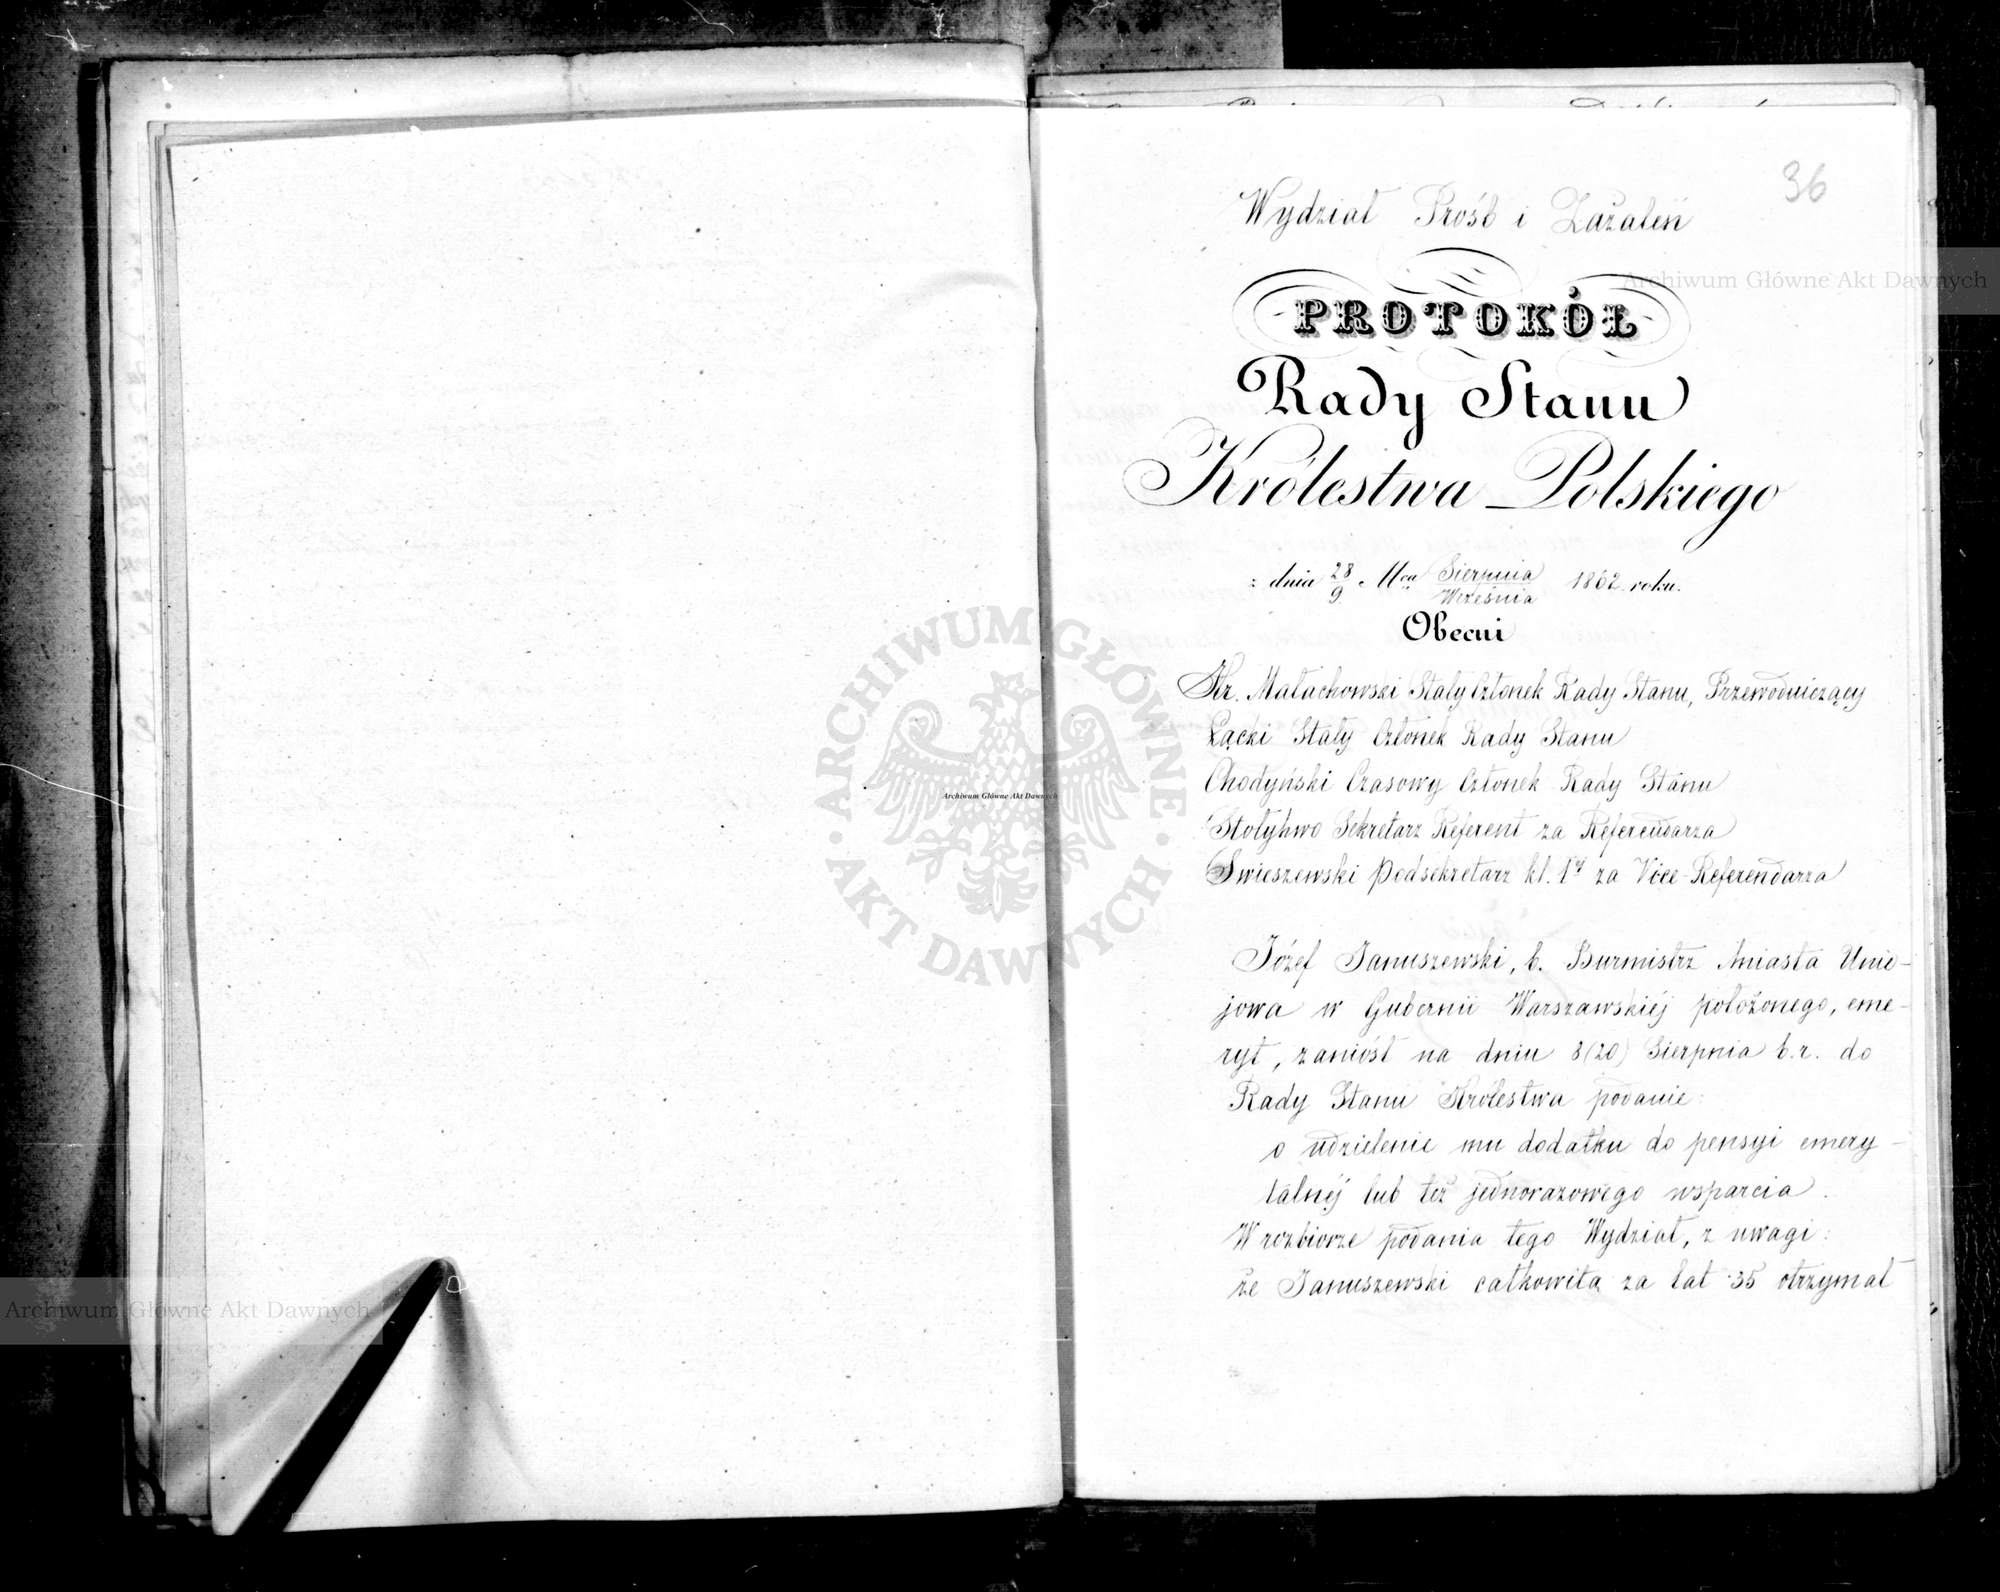 36
Wydział Próśb i Zażaleń
PROTOKÓŁ
Rady Stanu
Królestwa Polskiego
z dnia 28/9 Mca Sierpnia/Września 1862 roku.
Obecni
Hr. Małachowski Stały Członek Rady Stanu, Przewodniczący
Łącki Stały Członek Rady Stanu
Chodyński Czasowy Członek Rady Stanu
Stołyhwo Sekretarz Referent za Referendarza
Swieszewski Podsekretarz kl. 1éj za Vice-Referendarza
Józef Januszewski, b. Burmistrz Miasta Unie-
jowa w Gubernii Warszawskiéj położonego, eme-
ryt, zaniósł na dniu 8(20) Sierpnia b.r. do
Rady Stanu Królestwa podanie:
o udzielenie mu dodatku do pensyi emery-
talnéj lub też jednorazowego wsparcia.
W rozbiorze podania tego Wydział, z uwagi:
że Januszewski całkowitą za lat 35 otrzymał
ARCHIWUM GŁÓWNE AKT DAWNYCH
Archiwum Główne Akt Dawnych
Archiwum Główne Akt Dawnych
Archiwum Główne Akt Dawnych